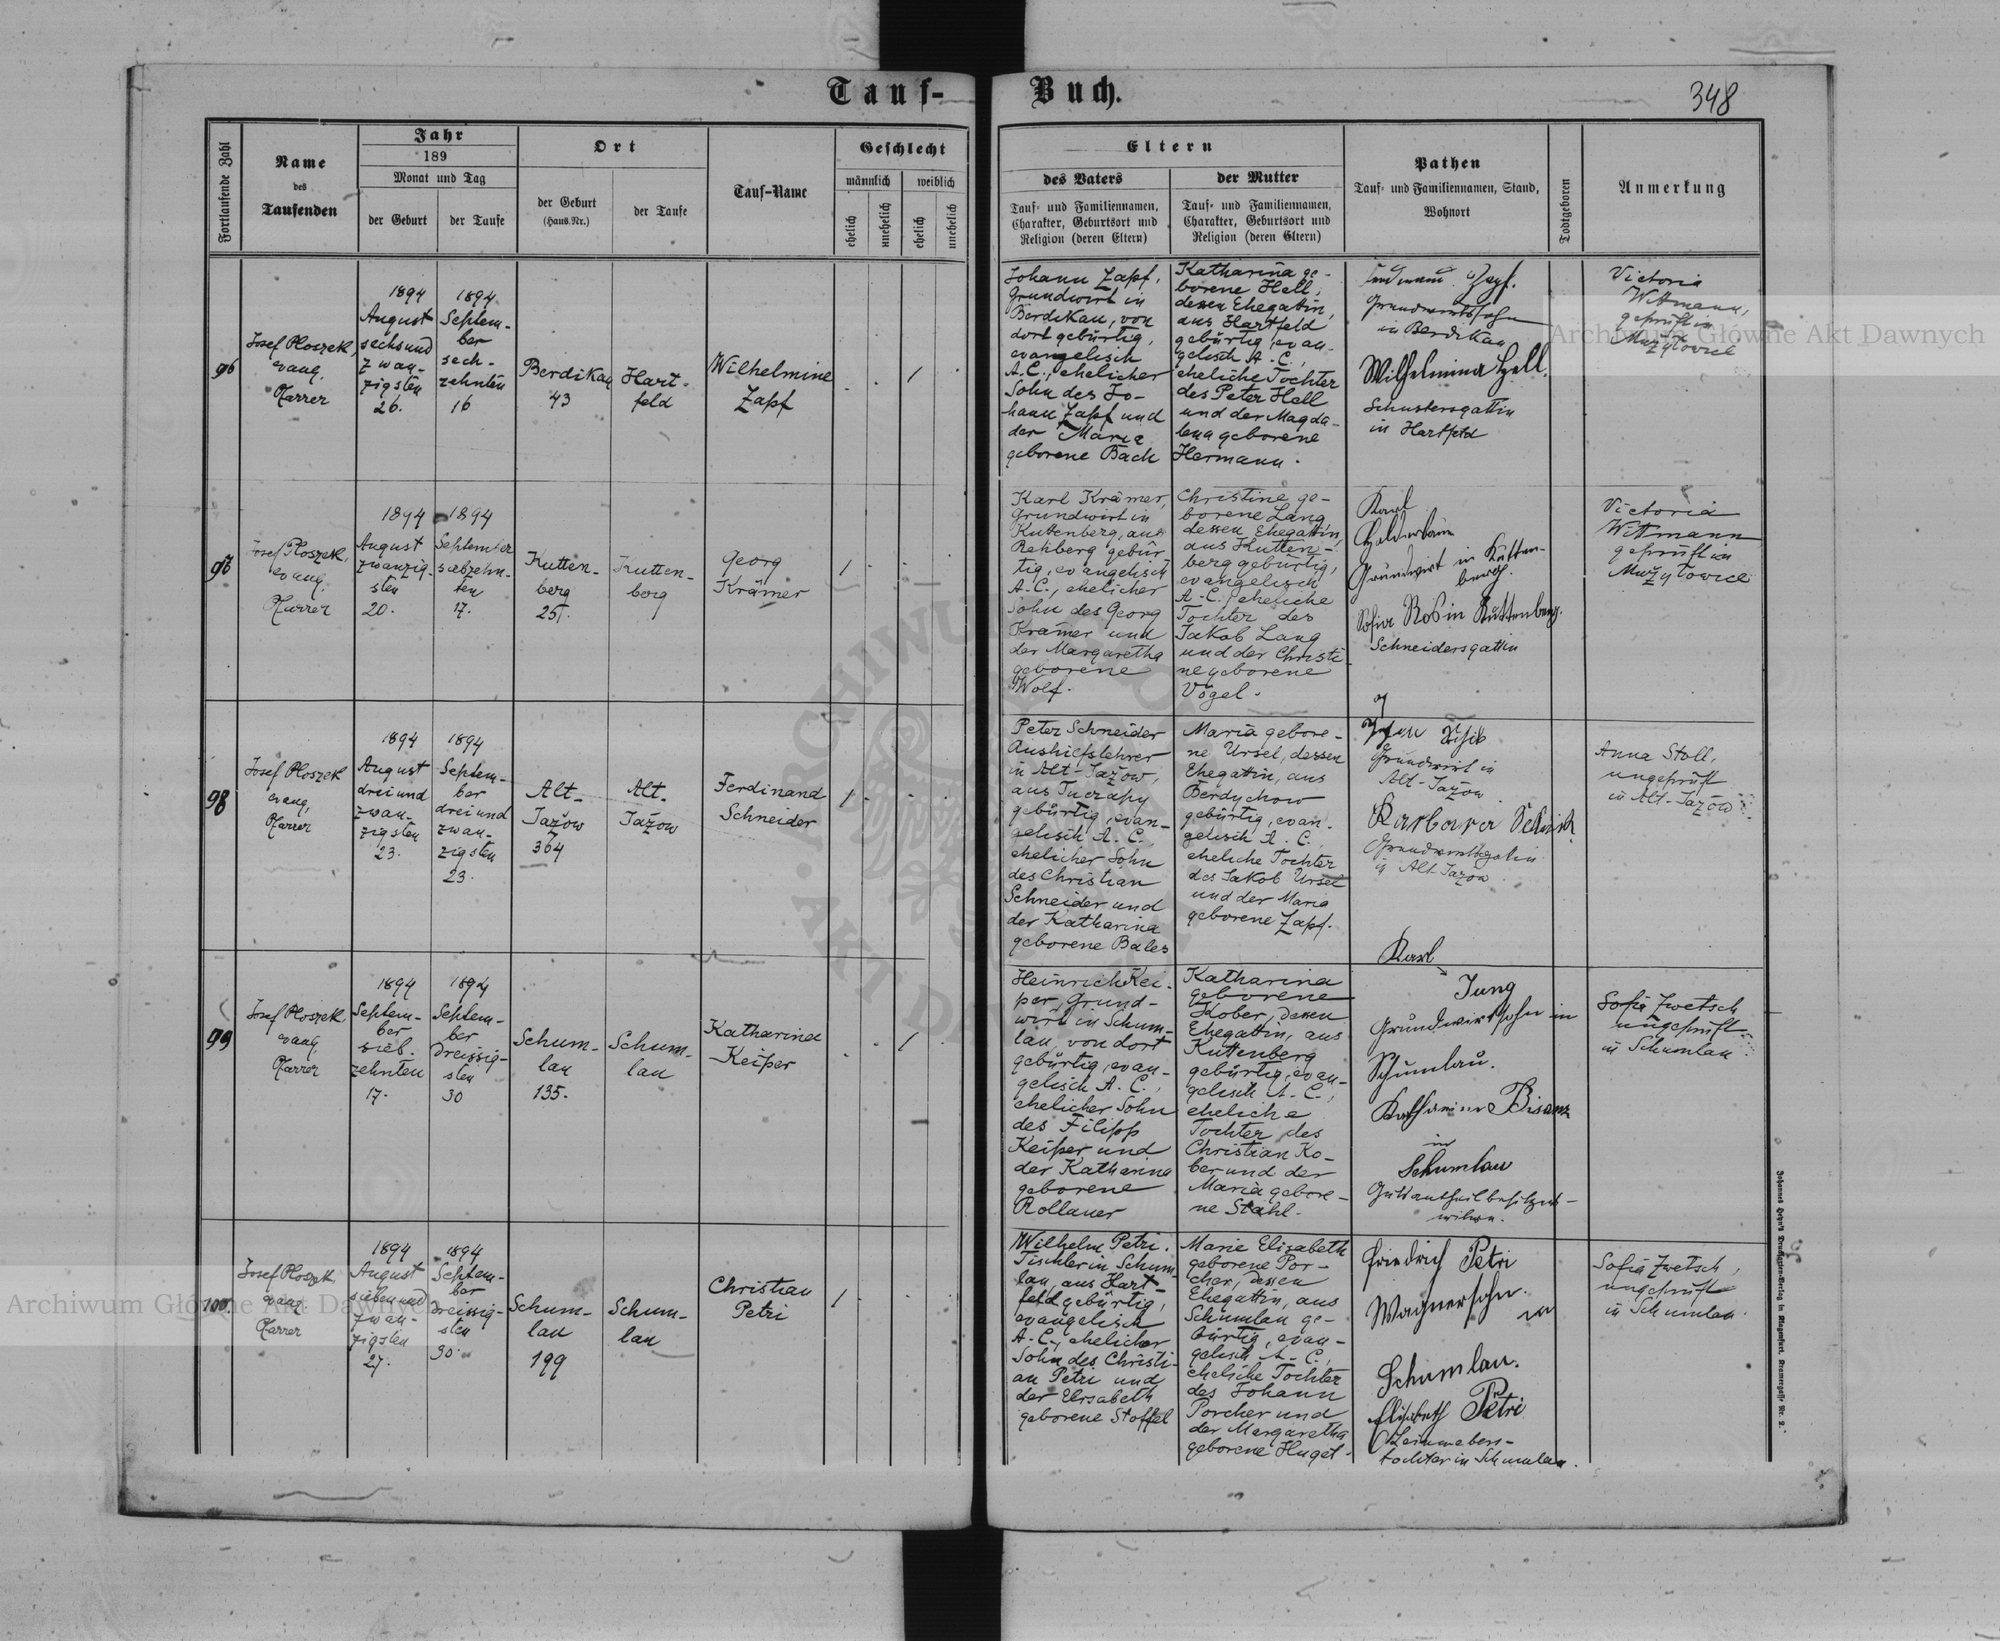 Tauf-
Buch.
348
Fortlaufende Zahl
Name
des
Taufenden
Jahr
189
Monat und Tag
der Geburt
der Taufe
Ort
der Geburt
(Haus-Nr.)
der Taufe
Tauf-Name
Geschlecht
männlich
weiblich
ehelich
unehelich
ehelich
unehelich
Eltern
des Vaters
Tauf- und Familiennamen,
Charakter, Geburtsort und
Religion (deren Eltern)
der Mutter
Tauf- und Familiennamen,
Charakter, Geburtsort und
Religion (deren Eltern)
Pathen
Tauf- und Familiennamen, Stand,
Wohnort
Todtgeboren
Anmerkung
96
Josef Ploszek,
evang.
Pfarrer
1894
August
sechsund
zwan-
zigsten
26.
1894
Septem-
ber
sech-
zehnten
16
Berdikau
43
Hart-
feld
Wilhelmine
Zapf
Johann Zapf,
Grundwirt in
Berdikau, von
dort gebürtig,
evangelisch
A.C., ehelicher
Sohn des Jo-
hann Zapf und
der Maria
geborene Bach
Katharina ge-
borene Hell,
dessen Ehegattin,
aus Hartfeld
gebürtig, evan-
gelisch A.C.,
eheliche Tochter
des Peter Hell
und der Magda-
lena geborene
Hermann.
Zapf.
Grundwirtssohn
in Berdikau
Wilhelmina Hell,
Schustersgattin
in Hartfeld
Victoria
Wittmann,
geprüft in
Mużyłowice
97
Josef Ploszek,
evang.
Pfarrer
1894
August
zwanzig-
sten
20.
1894
September
siebzehn-
ten
17.
Kutten-
berg
25.
Kutten-
berg
Georg
Krämer
Karl Krämer,
Grundwirt in
Kuttenberg, aus
Rehberg gebür-
tig, evangelisch
A.C., ehelicher
Sohn des Georg
Krämer und
der Margaretha
geborene
Wolf.
Christine ge-
borene Lang
dessen Ehegattin,
aus Kutten-
berg gebürtig,
evangelisch
A.C. eheliche
Tochter des
Jakob Lang
und der Christi-
ne geborene
Vogel.
Karl
Grundwirt in Kutten-
berg.
Sofia Rosin Kuttenberg.
Schneidersgattin
Victoria
Wittmann
geprüft in
Mużyłowice
98
Josef Ploszek
evang.
Pfarrer
1894
August
dreiund
zwan-
zigsten
23.
1894
Septem-
ber
dreiund
zwan-
zigsten
23.
Alt-
Jażow
364
Alt-
Jażow
Ferdinand
Schneider
Peter Schneider
Aushilfslehrer
in Alt-Jażow,
aus Tuczapy
gebürtig, evan-
gelisch A.C.
ehelicher Sohn
des Christian
Schneider und
der Katharina
geborene Bales
Maria gebore-
ne Ursel, dessen
Ehegattin, aus
Berdychow
gebürtig, evan-
gelisch A.C.
eheliche Tochter
des Jakob Ursel
und der Maria
geborene Zapf.
Grundwirt in
Alt-Jażow
Barbara
Grundwirtsgattin
in Alt Jażow
Anna Stoll,
ungeprüft
in Alt-Jażow
99
Josef Ploszek
evang.
Pfarrer
1894
Septem-
ber
sieb-
zehnten
17.
1894
Septem-
ber
dreissig-
sten
30
Schum-
lau
135.
Schum-
lau
Katharina
Keiper
Heinrich Kei-
per, Grund-
wirt in Schum-
lau, von dort
gebürtig, evan-
gelisch A.C.,
ehelicher Sohn
des Filipp
Keiper und
der Katharina
geborene
Rollauer
Katharina
geborene
Kober, dessen
Ehegattin, aus
Kuttenberg
gebürtig, evan-
gelisch A.C.,
eheliche
Tochter des
Christian Ko-
ber und der
Maria gebore-
ne Stahl.
Karl
Jung
Grundwirtsohn in
Schumlau.
Katharina Bisanz
in
Schumlau
Sofia Zwetsch
ungeprüft
in Schumlau
100.
Josef Ploszek
evang.
Pfarrer
1894
August
sieben und
zwan-
zigsten
27.
1894
Septem-
ber
dreissig-
sten
30.
Schum-
lau
199
Schum-
lau
Christian
Petri
Wilhelm Petri,
Tischler in Schum-
lau, aus Hart-
feld gebürtig,
evangelisch
A.C., ehelicher
Sohn des Christi-
an Petri und
der Elisabeth
geborene Stoffel
Marie Elisabeth
geborene Por-
cher, dessen
Ehegattin, aus
Schumlau ge-
bürtig, evan-
gelisch A.C.,
eheliche Tochter
des Johann
Porcher und
der Margaretha
geborene Huget.
Friedrich Petri
Wagnersohn
in
Schumlau.
Elisabeth Petri
Leinwebers-
tochter in Schumlau.
Sofia Zwetsch,
ungeprüft
in Schumlau.
Archiwum Główne Akt Dawnych
Archiwum Główne Akt Dawnych